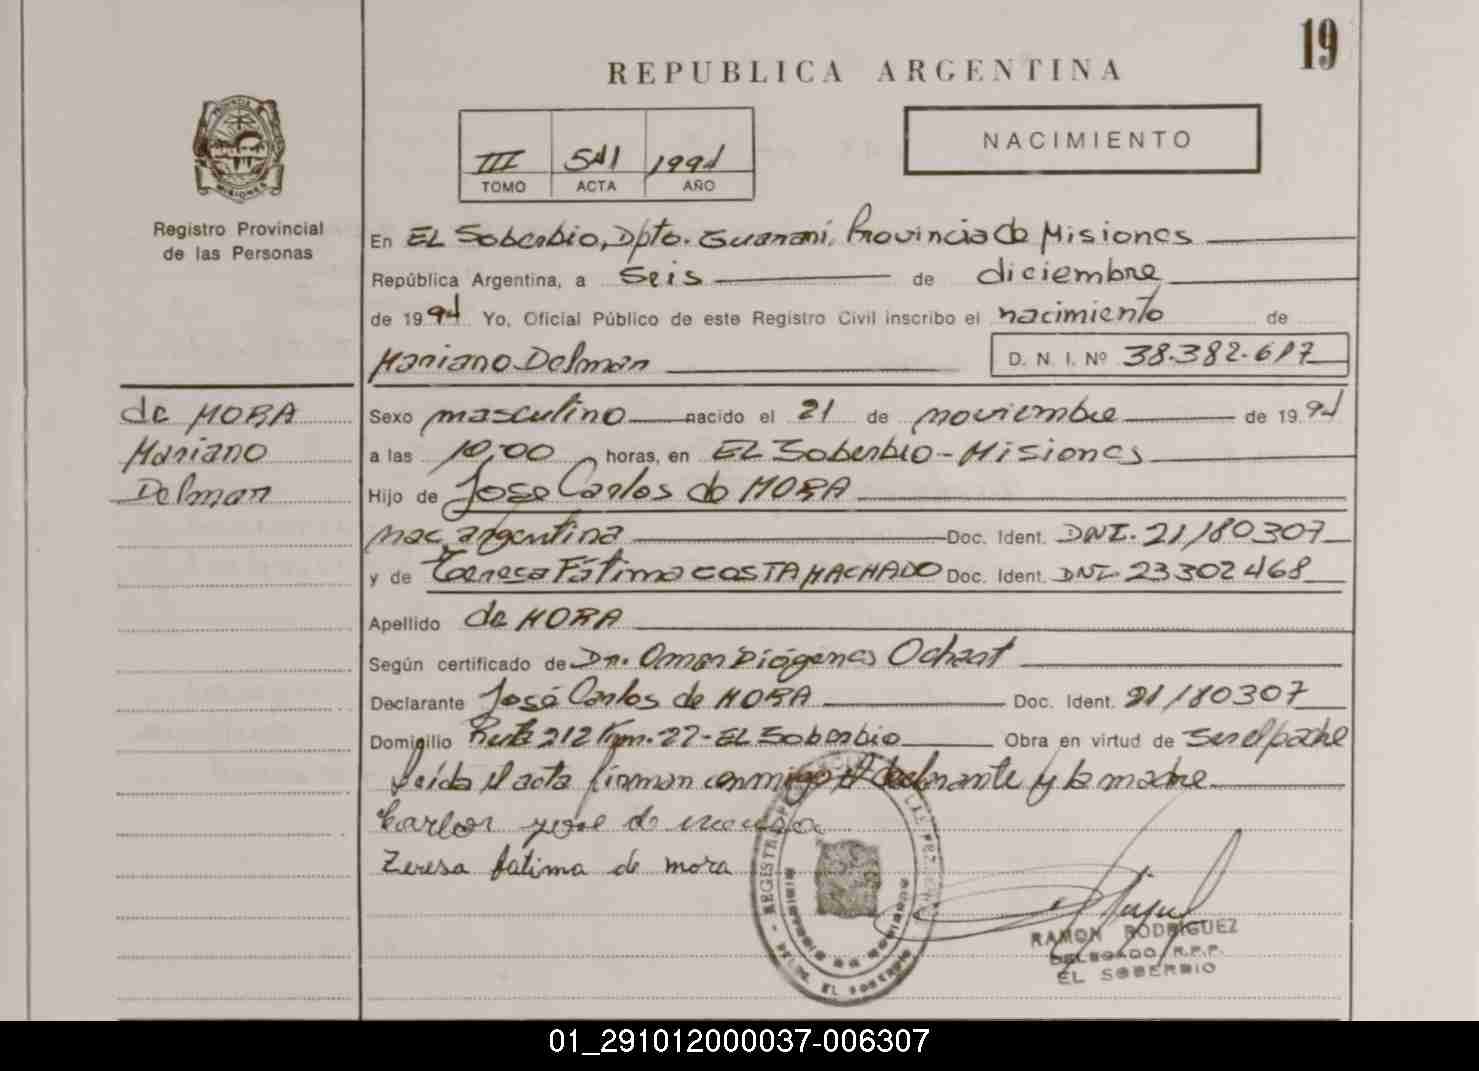 19
REPUBLICA ARGENTINA
NACIMIENTO
III 541 1994
TOMO ACTA AÑO
PROVINCIA DE MISIONES
Registro Provincial
de las Personas
En EL Soberbio, Dpto. Guaraní, Provincia de Misiones
República Argentina, a seis de diciembre
de 1994 Yo, Oficial Público de este Registro Civil inscribo el nacimiento de
Mariano Delman D. N. I. Nº 38.382.617
de MORA
Mariano
Delman
Sexo masculino nacido el 21 de noviembre de 1994
a las 10,00 horas, en EL Soberbio - Misiones
Hijo de Jose Carlos de MORA
nac. argentina Doc. Ident. DNI. 21180307
y de Teresa Fátima COSTA MACHADO Doc. Ident. DNI. 23302468
Apellido de MORA
Según certificado de Dr. Omar Diógenes Ochast
Declarante José Carlos de MORA Doc. Ident. 21180307
Domicilio Ruta 212 Km. 22 - EL Soberbio Obra en virtud de ser el padre
Leída el acta firman conmigo el declarante y la madre
Carlos jose de mora
Teresa fatima de mora
RAMON RODRIGUEZ
DELEGADO R.P.P.
EL SOBERBIO
01_291012000037-006307